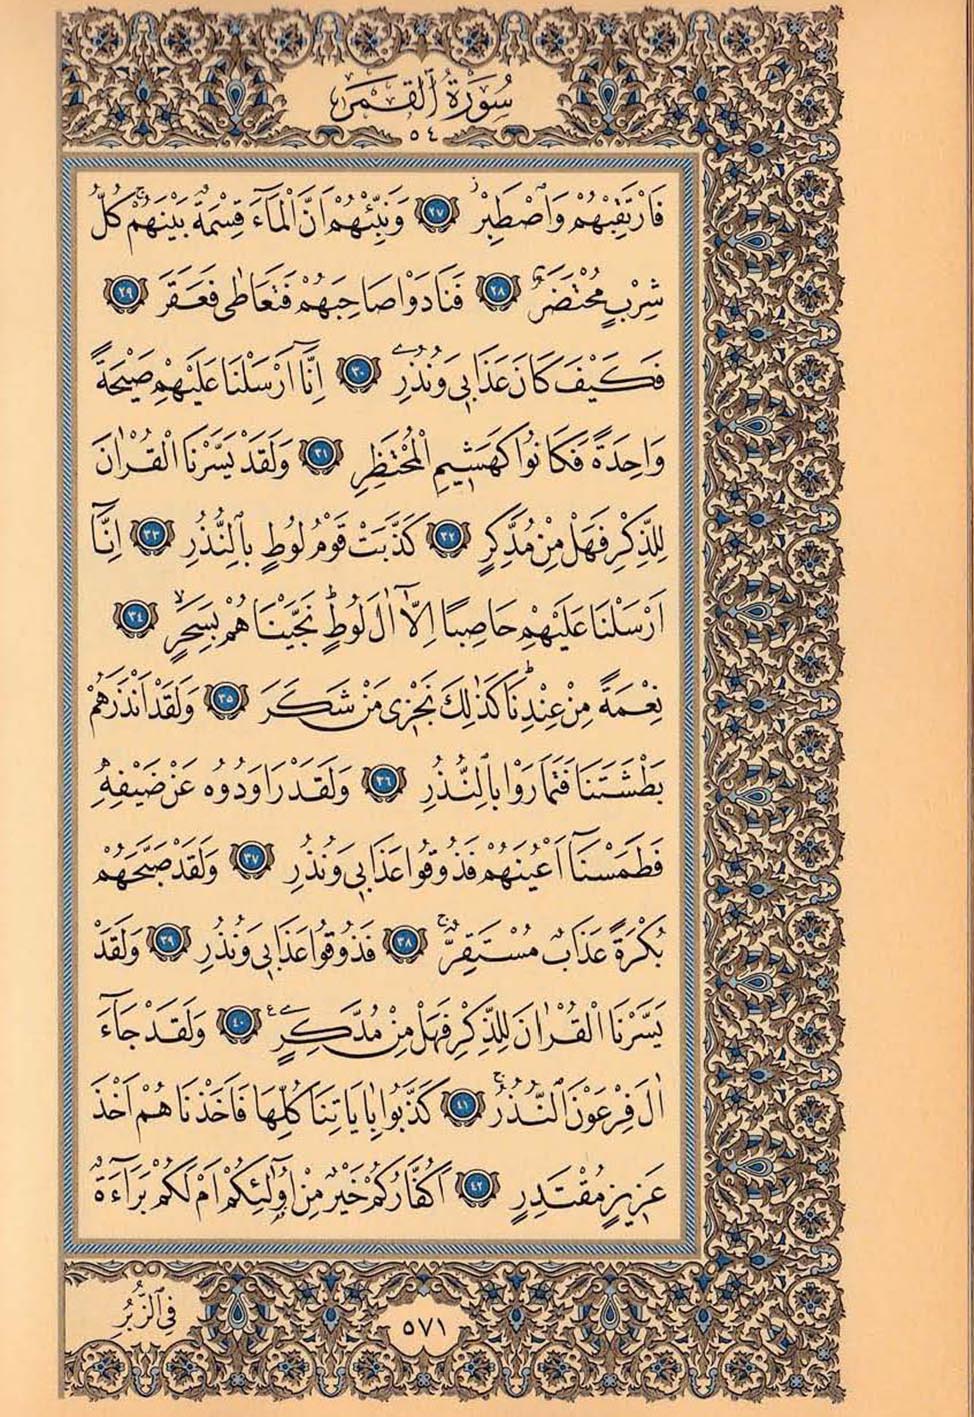 سُورَةُ ٱلْقَمَرِ
٥٤
فَارْتَقِبْهُمْ وَاصْطَبِرْۘ ٢٧ وَنَبِّئْهُمْ اَنَّ الْمَٓاءَ قِسْمَةٌ بَيْنَهُمْۚ كُلُّ
شِرْبٍ مُحْتَضَرٌ ٢٨ فَنَادَوْا صَاحِبَهُمْ فَتَعَاطٰى فَعَقَرَ ٢٩
فَكَيْفَ كَانَ عَذَابٖي وَنُذُرِ ٣٠ اِنَّٓا اَرْسَلْنَا عَلَيْهِمْ صَيْحَةً
وَاحِدَةً فَكَانُوا كَهَشٖيمِ الْمُحْتَظِرِ ٣١ وَلَقَدْ يَسَّرْنَا الْقُرْاٰنَ
لِلذِّكْرِ فَهَلْ مِنْ مُدَّكِرٍ ٣٢ كَذَّبَتْ قَوْمُ لُوطٍ بِالنُّذُرِ ٣٣ اِنَّٓا
اَرْسَلْنَا عَلَيْهِمْ حَاصِبًا اِلَّٓا اٰلَ لُوطٍؕ نَجَّيْنَاهُمْ بِسَحَرٍۙ ٣٤
نِعْمَةً مِنْ عِنْدِنَاؕ كَذٰلِكَ نَجْزٖي مَنْ شَكَرَ ٣٥ وَلَقَدْ اَنْذَرَهُمْ
بَطْشَتَنَا فَتَمَارَوْا بِالنُّذُرِ ٣٦ وَلَقَدْ رَاوَدُوهُ عَنْ ضَيْفِهٖ
فَطَمَسْنَٓا اَعْيُنَهُمْ فَذُوقُوا عَذَابٖي وَنُذُرِ ٣٧ وَلَقَدْ صَبَّحَهُمْ
بُكْرَةً عَذَابٌ مُسْتَقِرٌّۚ ٣٨ فَذُوقُوا عَذَابٖي وَنُذُرِ ٣٩ وَلَقَدْ
يَسَّرْنَا الْقُرْاٰنَ لِلذِّكْرِ فَهَلْ مِنْ مُدَّكِرٍ ٤٠ وَلَقَدْ جَٓاءَ
اٰلَ فِرْعَوْنَ النُّذُرُۚ ٤١ كَذَّبُوا بِاٰيَاتِنَا كُلِّهَا فَاَخَذْنَاهُمْ اَخْذَ
عَزٖيزٍ مُقْتَدِرٍ ٤٢ اَكُفَّارُكُمْ خَيْرٌ مِنْ اُو۬لٰٓئِكُمْ اَمْ لَكُمْ بَرَٓاءَةٌ
فِي ٱلزُّبُرِ
٥٧١